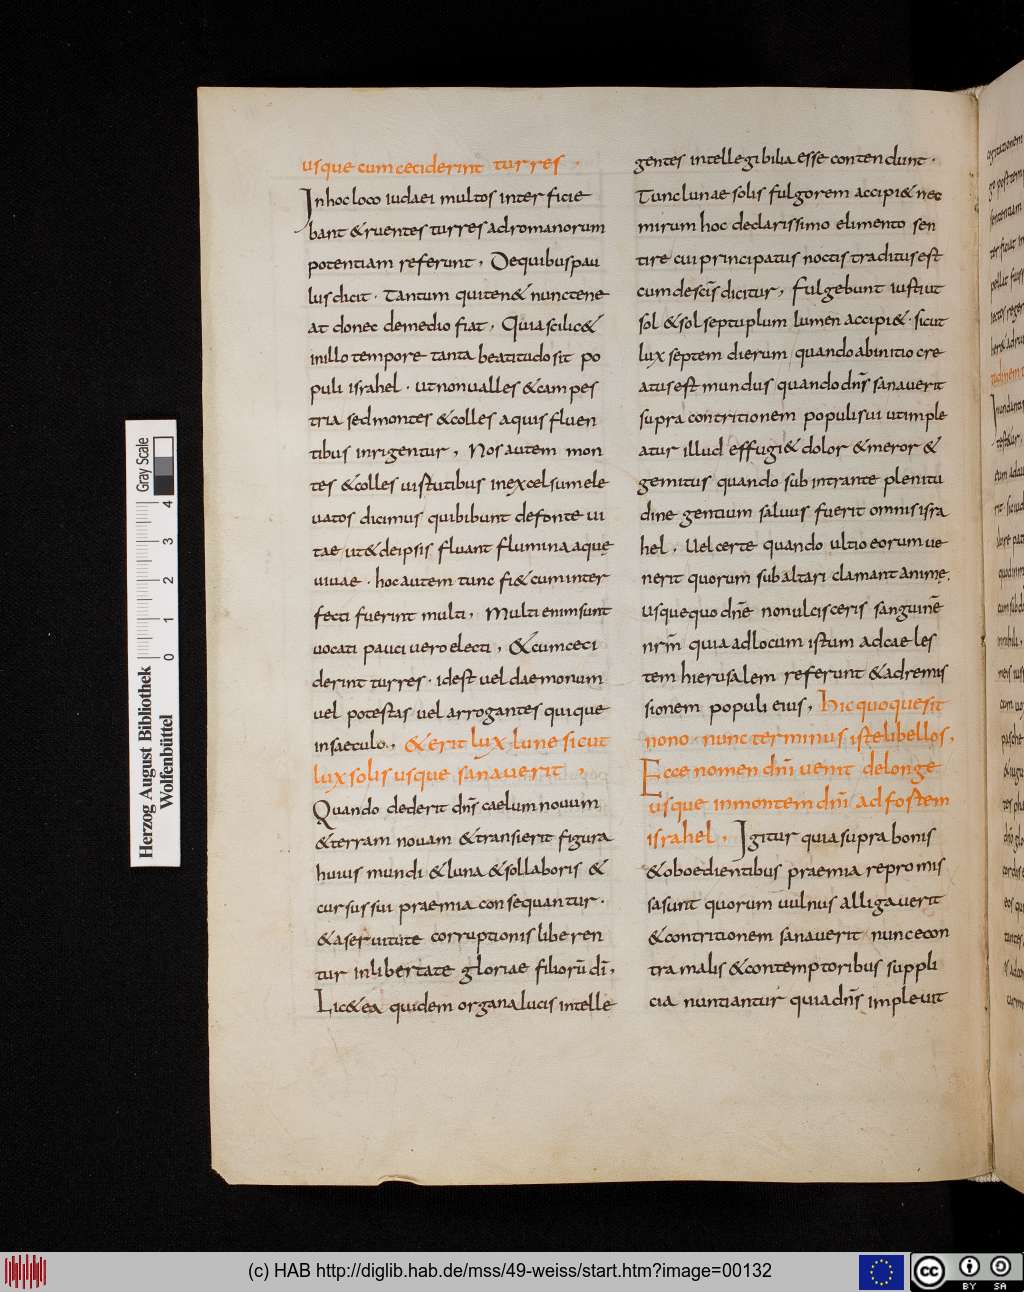 usque cum ceciderint turres.
In hoc loco iudaei multos interficie
bant & ruentes turres ad romanorum
potentiam referunt, De quibus pau
lus dicit. Tantum qui ten& nunc tene
at donec de medio fiat, Quia scilic&
in illo tempore tanta beatitudo sit po
puli israhel. ut non ualles & campes
tria sed montes & colles aquis fluen
tibus inrigentur, Nos autem mon
tes & colles uirtutibus in excelsum ele
uatos dicimus qui bibunt de fonte ui
tae ut & de ipsis fluant flumina aquę
uiuae. hoc autem tunc fi& cum inter
fecti fuerint multi, Multi enim sunt
uocati pauci uero electi, & cum ceci
derint turres. id est uel daemonum
uel potestas uel arrogantes qui que
in saeculo, & erit lux lune sicut
lux solis usque sanauerit,
Quando dederit dn̄s caelum nouum
& terram nouam & transierit figura
huius mundi & luna & sol laboris &
cursus sui praemia consequantur.
& a seruitute corruptionis liberen
tur in libertate gloriae filiorū dī,
Lic& ea quidem organa lucis intelle
gentes intellegibilia esse contendunt.
Tunc lunae solis fulgorem accipi& nec
mirum hoc de clarissimo elimento sen
tire cui principatus noctis traditus est
cum de sc̄is dicitur, Fulgebunt iusti ut
sol & sol septuplum lumen accipi&. sicut
lux septem dierum quando ab initio cre
atus est mundus quando dn̄s sanauerit
supra contritionem populi sui ut imple
atur illud effugi& dolor & meror &
gemitus quando sub intrante plenitu
dine gentium saluus fuerit omnis isra
hel. Uel certe quando ultio eorum ue
nerit quorum sub altari clamant animę.
usquequo dn̄e non ulcisceris sanguinē
nr̄m quia ad locum istum ad caeles
tem hierusalem referunt & ad remis
sionem populi eius, hic quoque sit
nono. nunc terminus iste libellos,
Ecce nomen dn̄i uenit de longe
usque in montem dn̄i ad fostem
israhel, Igitur quia supra bonis
& oboedientibus praemia repromis
sa sunt quorum uulnus alligauerit
& contritionem sanauerit nunc econ
tra malis & contemptoribus suppli
cia nuntiantur quia dn̄s impleuit
Gray Scale
4
3
2
1
0
Herzog August Bibliothek
Wolfenbüttel
(c) HAB http://diglib.hab.de/mss/49-weiss/start.htm?image=00132
cc
BY
SA